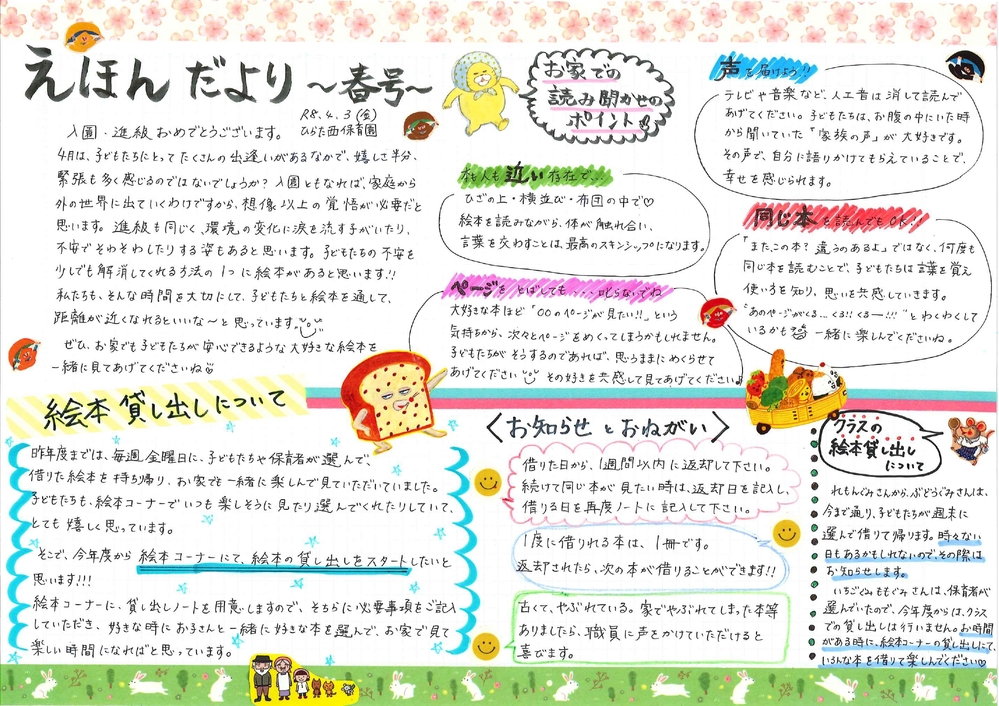 えほんだより ～春号～
R8.4.3(金)
ひらた西保育園
入園・進級おめでとうございます。
4月は、子どもたちにとってたくさんの出逢いがあるなかで、嬉しさ半分、
緊張も多く感じるのではないでしょうか？入園ともなれば、家庭から
外の世界に出ていくわけですから、想像以上の覚悟が必要だと
思います。進級も同じく、環境の変化に涙を流す子がいたり、
不安でそわそわしたりする姿もあると思います。子どもたちの不安を
少しでも解消してくれる方法の1つに絵本があると思います!!
私たちも、そんな時間を大切にして、子どもたちと絵本を通して、
距離が近くなれるといいな～と思っています。
ぜひ、お家でも子どもたちが安心できるような大好きな絵本を
一緒に見てあげてくださいね
お家での
読み聞かせの
ポイント
本も人も近い存在で…
ひざの上・横並び・布団の中で♡
絵本を読みながら、体が触れ合い、
言葉を交わすことは、最高のスキンシップになります。
ページをとばしても……叱らないでね
大好きな本ほど「〇〇のページが見たい!!」という
気持ちから、次々とページをめくってしまうかもしれません。
子どもたちがそうするのであれば、思うままにめくらせて
あげてください その好きを共感して見てあげてください。
声を届けよう!!
テレビや音楽など、人工音は消して読んで
あげてください。子どもたちは、お腹の中にいた時
から聞いていた「家族の声」が大好きです。
その声で、自分に語りかけてもらえていることで、
幸せを感じられます。
同じ本を読んでもOK!!
「またこの本？違うのあるよ」ではなく、何度も
同じ本を読むことで、子どもたちは言葉を覚え
使い方を知り、思いを共感していきます。
"あのページがくる…くる!!くるー!!!"とわくわくして
いるかも 一緒に楽しんでくださいね。
絵本貸し出しについて
昨年度までは、毎週金曜日に、子どもたちや保育者が選んで、
借りた絵本を持ち帰り、お家でも一緒に楽しんで見ていただいていました。
子どもたちも、絵本コーナーでいつも楽しそうに見たり選んでくれたりしていて、
とても嬉しく思っています。
そこで、今年度から絵本コーナーにて、絵本の貸し出しをスタートしたいと
思います!!!
絵本コーナーに、貸し出しノートを用意しますので、そちらに必要事項をご記入
していただき、好きな時にお子さんと一緒に好きな本を選んで、お家で見て
楽しい時間になればと思っています。
〈お知らせとおねがい〉
借りた日から、1週間以内に返却して下さい。
続けて同じ本が見たい時は、返却日を記入し、
借りる日を再度ノートに記入して下さい。
1度に借りれる本は、1冊です。
返却されたら、次の本が借りることができます!!
古くて、やぶれている。家でやぶれてしまった本等
ありましたら、職員に声をかけていただけると
喜びます。
クラスの
絵本貸し出し
について
れもんぐみさんから、ぶどうぐみさんは、
今まで通り、子どもたちが週末に
選んで借りて帰ります。時々ない
日もあるかもしれないのでその際は
お知らせします。
いちごぐみももぐみさんは、保育者が
選んでいたので、今年度からは、クラス
での貸し出しは行いません。お時間
がある時に、絵本コーナーの貸し出しにて、
いろんな本を借りて楽しんでください♡